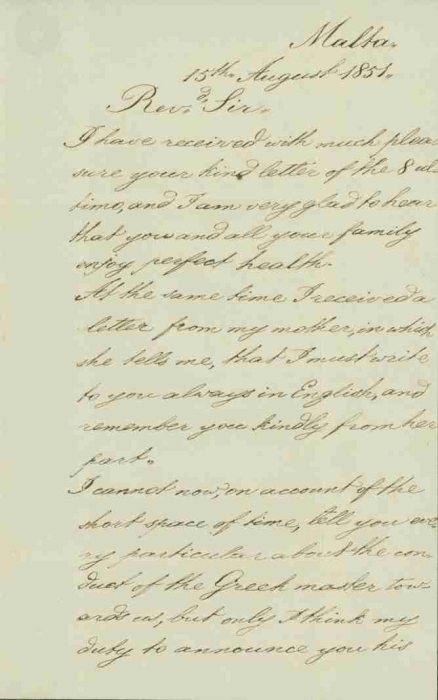 Malta.
15th. August 1851.
Rev.d Sir.
I have received with much plea
sure your kind letter of the 8 ul
timo, and I am very glad to hear
that you and all your family
enjoy perfect health.
At the same time I received a
letter from my mother, in which
she tells me, that I must write
to you always in English, and
remember you kindly from her
part.
I cannot now, on account of the
short space of time, tell you eve
ry particular about the con
duct of the Greek master tow
ards us, but only I think my
duty to announce you his